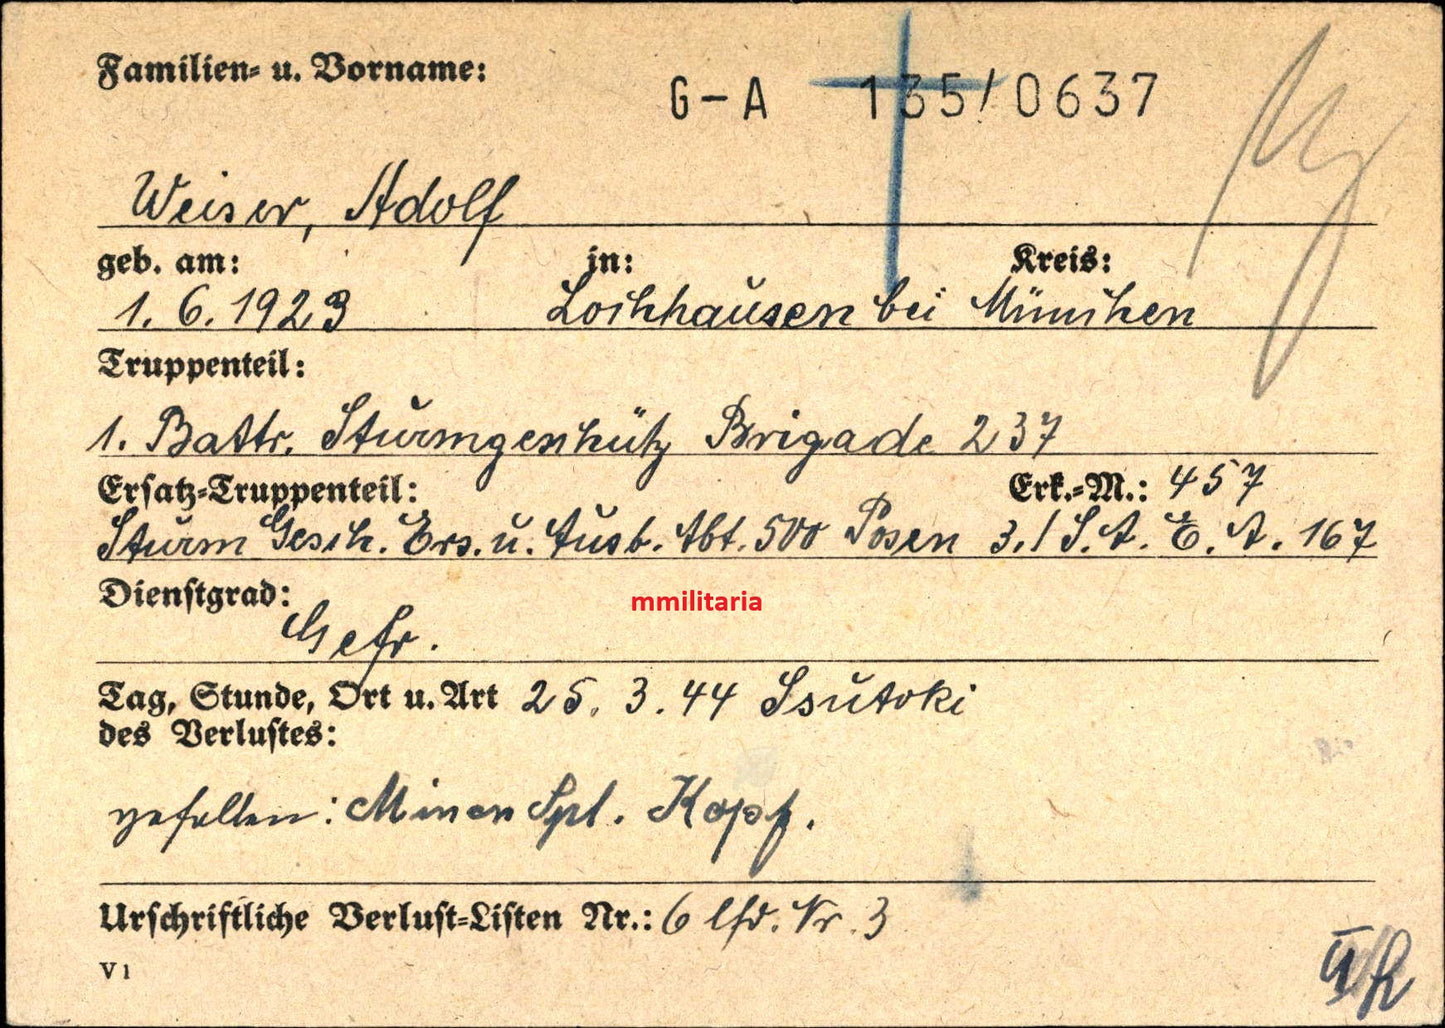 Familien- u. Vorname:
G-A 135/0637
Weiser, Adolf
geb. am: in: Kreis:
1. 6. 1923 Lochhausen bei München
Truppenteil:
1. Battr. Sturmgeschütz Brigade 237
Ersatz-Truppenteil: Erk.-M.: 457
Sturm Gesch. Ers. u. Ausb. Abt. 500 Posen 3./S.A.E.A. 167
Dienstgrad:
Gefr.
mmilitaria
Tag, Stunde, Ort u. Art 25. 3. 44 Ssutoki
des Verlustes:
gefallen: Minen Spl. Kopf.
Urschriftliche Verlust-Listen Nr.: 6 lfd. Nr. 3
V 1